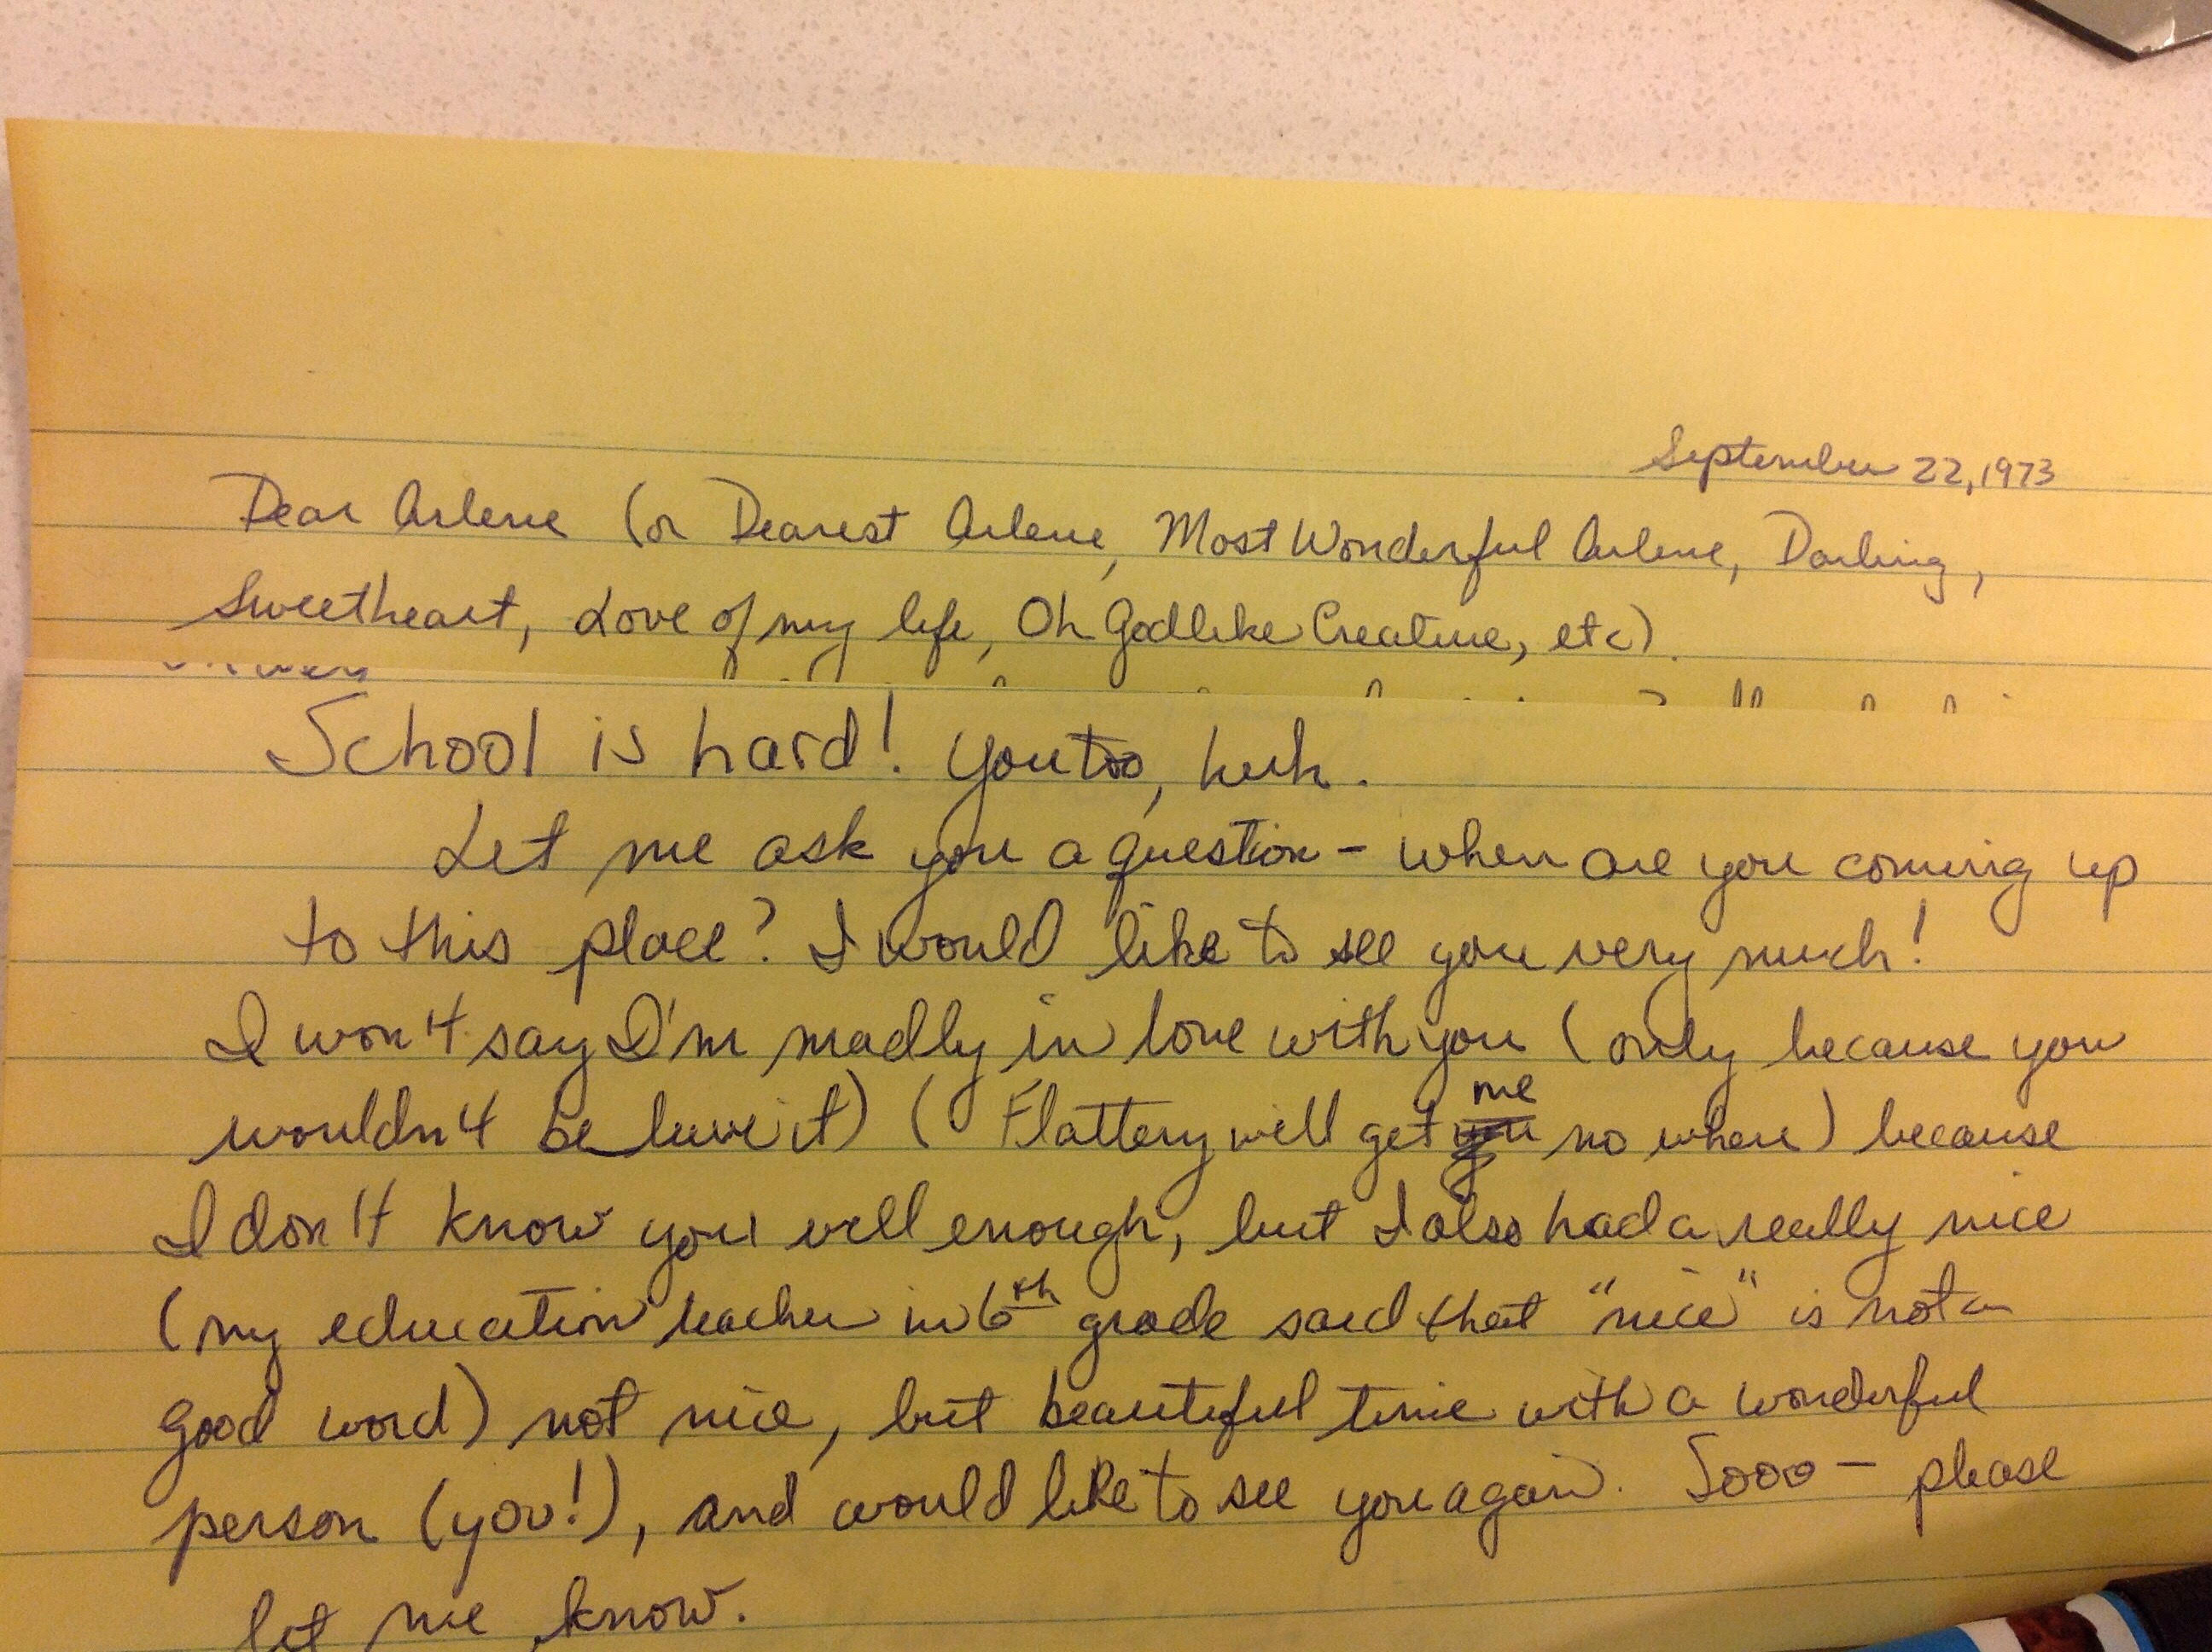 September 22, 1973
Dear Arlene (or Dearest Arlene, Most Wonderful Arlene, Darling,
Sweetheart, Love of my life, Oh Godlike Creature, etc).
School is hard! You too, huh.
Let me ask you a question - when are you coming up
to this place? I would like to see you very much!
I won't say I'm madly in love with you (only because you
wouldn't believe it) (Flattery will get me no where) because
I don't know you well enough, but I also had a really nice
(my education teacher in 6th grade said that "nice" is not a
good word) not nice, but beautiful time with a wonderful
person (you!), and would like to see you again. Sooo - please
let me know.